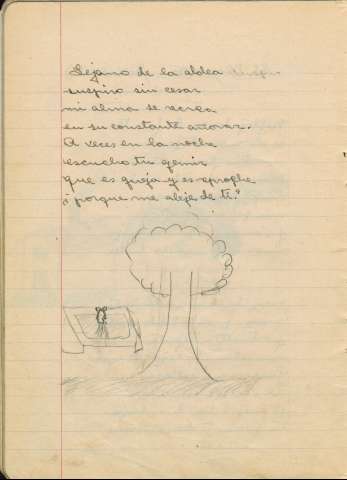 Lejano de la aldea
suspiro sin cesar
mi alma se
en su constante añorar.
A veces en la noche
escucho tu gemir
que es queja y es reproche
¿porque me aleje de ti?